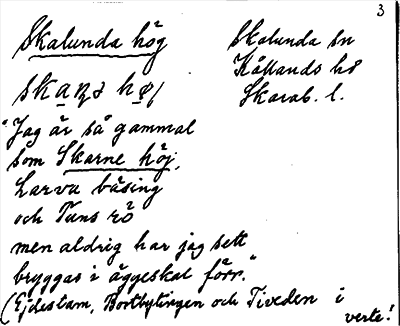 3
Skalunda hög
Skalunda sn
Kållands hd
Skarab. l.
"Jag är så gammal
som Skarne höj,
Larva båsing
och Tuns rö
men aldrig har jag sett
bryggas i äggeskal förr."
(Ejdestam, Bortbytingen och Tiveden i
verte!